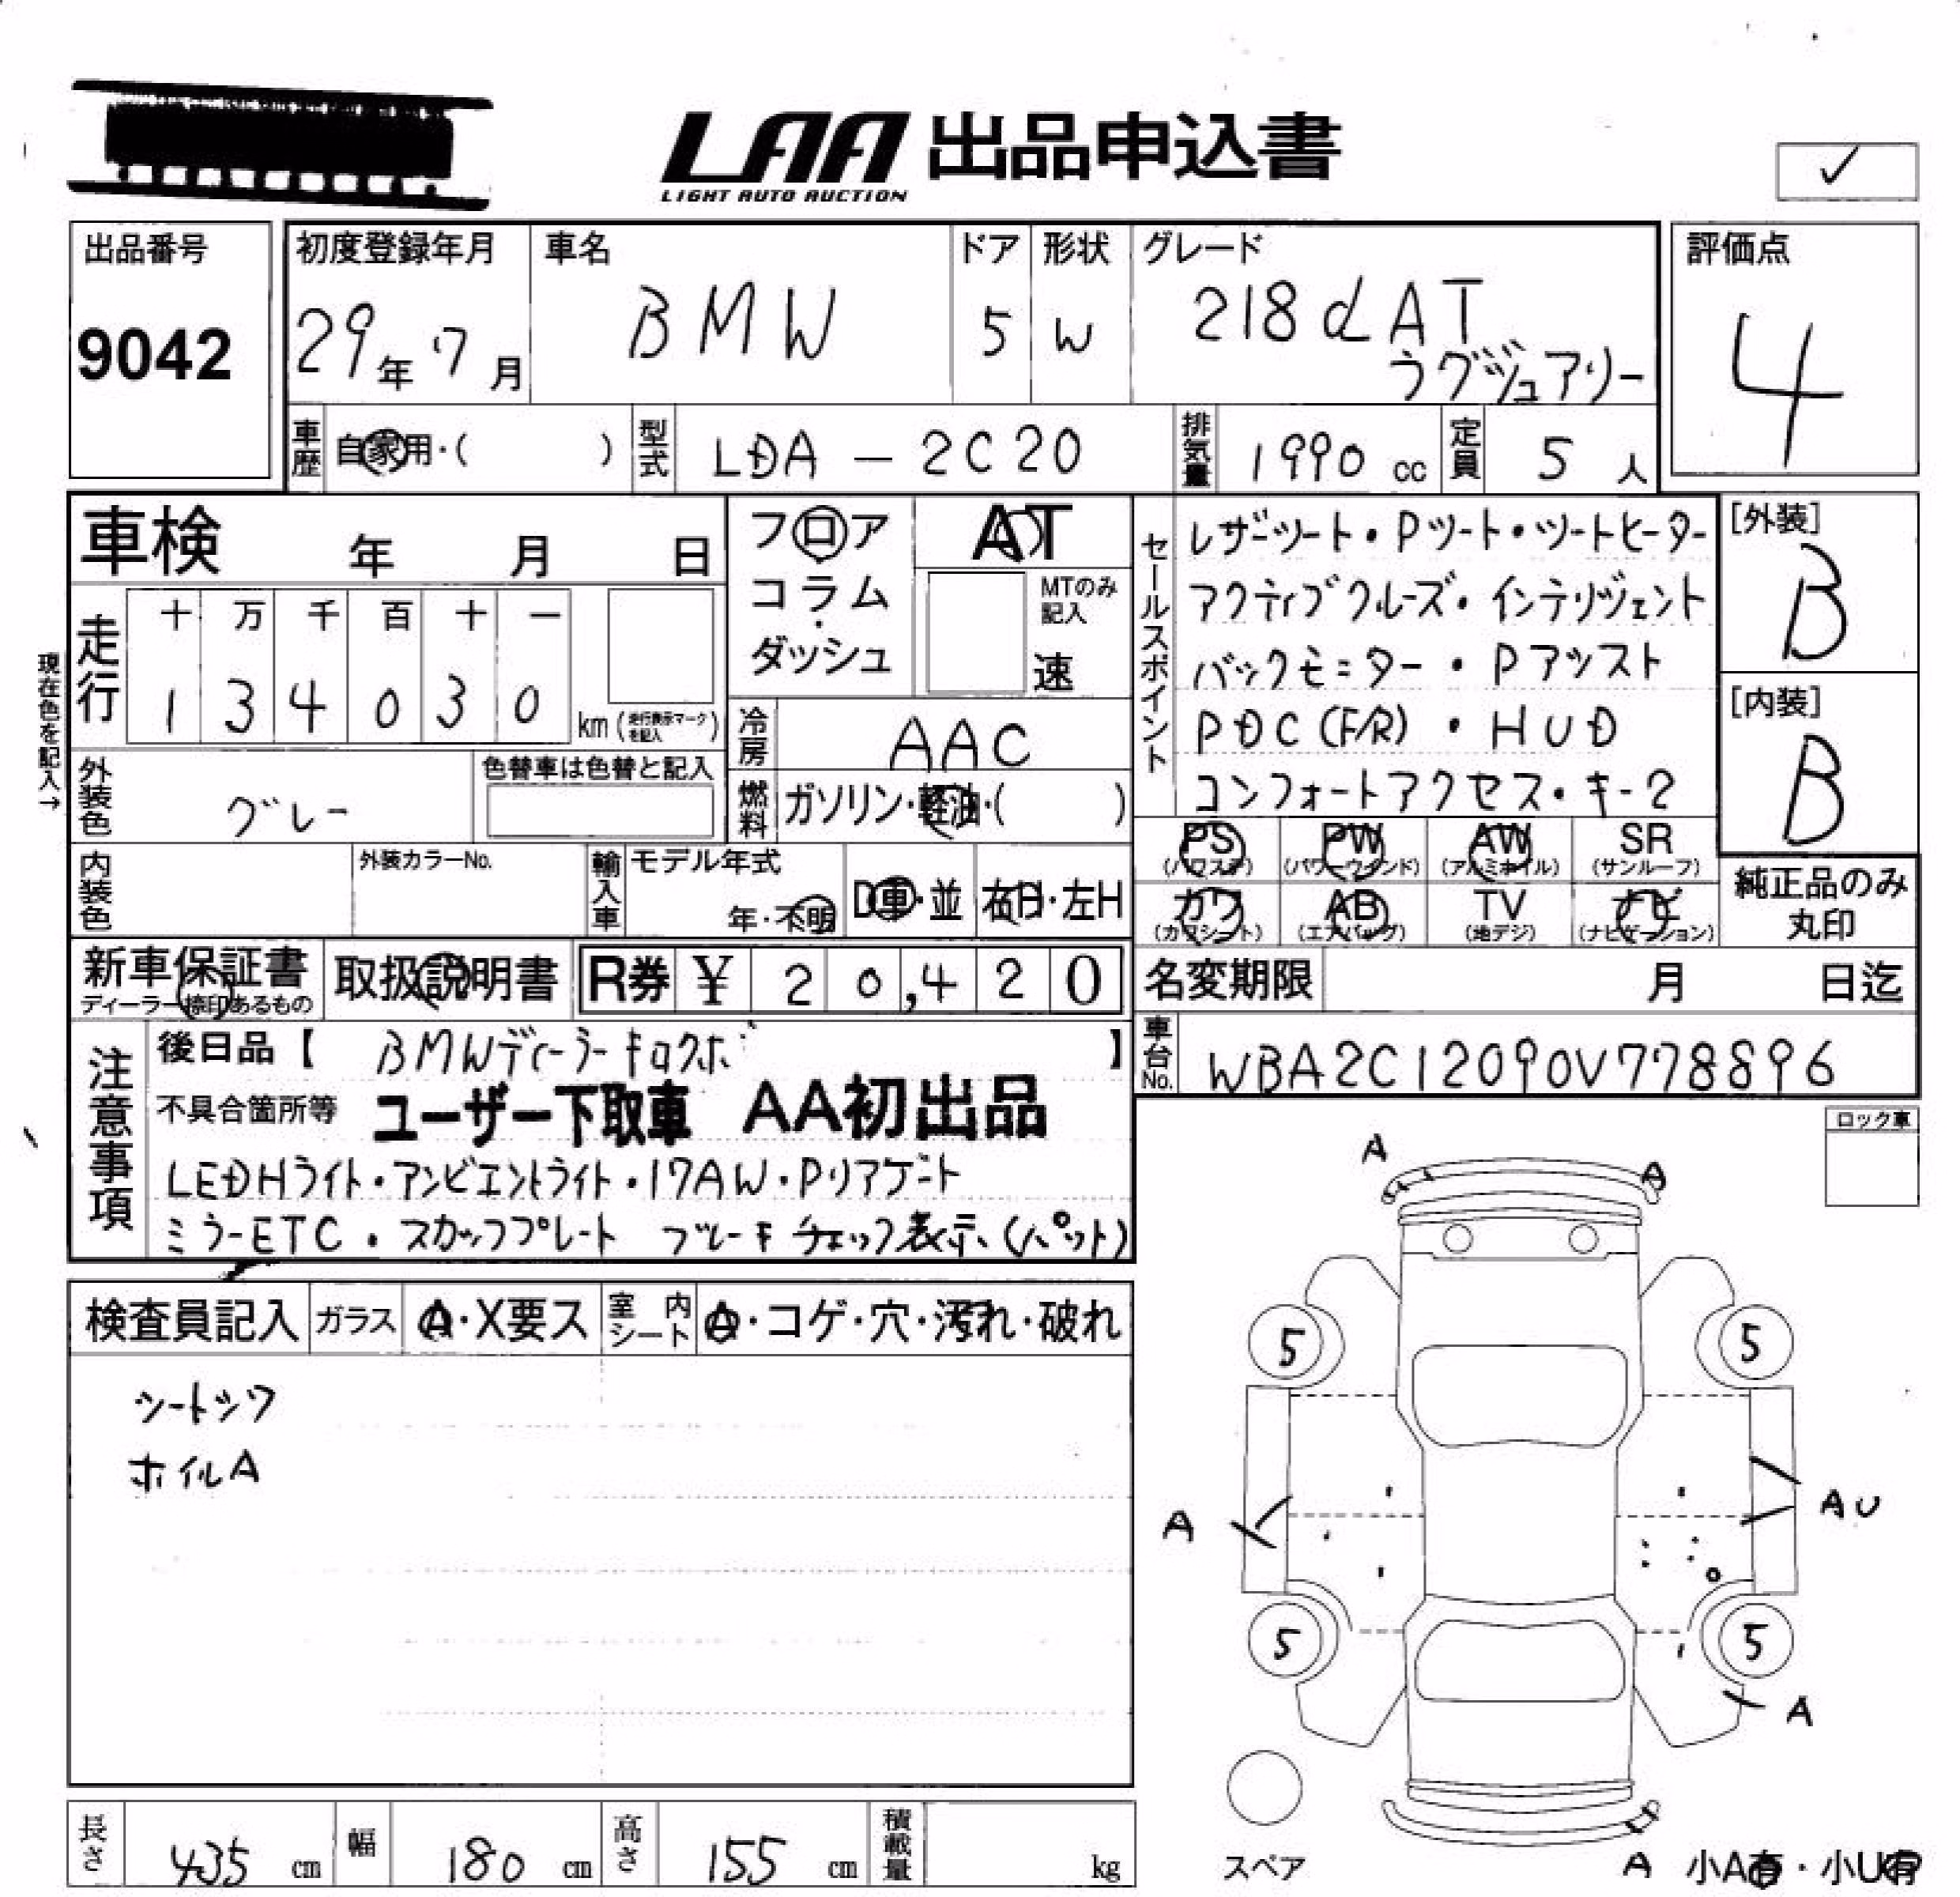 LAA 出品申込書
LIGHT AUTO AUCTION
✓
出品番号
9042
初度登録年月
29年 7月
車名
BMW
ドア
5
形状
W
グレード
218d AT
ラグジュアリー
評価点
4
車歴
自家用・( )
型式
LDA - 2C20
排気量
1990 cc
定員
5 人
車検 年 月 日
フロア
コラム
・
ダッシュ
AT
MTのみ
記入
速
セールスポイント
レザーシート・Pシート・シートヒーター
アクティブクルーズ・インテリジェント
バックモニター・Pアシスト
PDC(F/R)・HUD
コンフォートアクセス・キー2
[外装]
B
[内装]
B
現在色を記入→
走行
十 万 千 百 十 一
1 3 4 0 3 0
km (走行表示マークを記入)
冷房
AAC
外装色
グレー
色替車は色替と記入
燃料
ガソリン・軽油・( )
PS
(パワステ)
PW
(パワーウインド)
AW
(アルミホイル)
SR
(サンルーフ)
カワ
(カワシート)
AB
(エアバッグ)
TV
(地デジ)
ナビ
(ナビゲーション)
純正品のみ
丸印
内装色
外装カラーNo.
輸入車
モデル年式
年・不明
D車・並
右H・左H
新車保証書
ディーラー捺印あるもの
取扱説明書
R券 ¥ 2 0,4 2 0
名変期限 月 日迄
車台No.
WBA2C12090V778896
注意事項
後日品【 BMWディーラーキロクボ 】
不具合箇所等 ユーザー下取車 AA初出品
LEDHライト・アンビエントライト・17AW・Pリアゲート
ミラーETC・スカッフプレート ブレーキチェック表示(パット)
ロック車
検査員記入
ガラス
A・X要ス
室内シート
A・コゲ・穴・汚れ・破れ
シートシワ
ホイルA
A
A
5
5
A
AU
5
5
A
スペア
A
小A有・小U有
長さ
435 cm
幅
180 cm
高さ
155 cm
積載量
kg